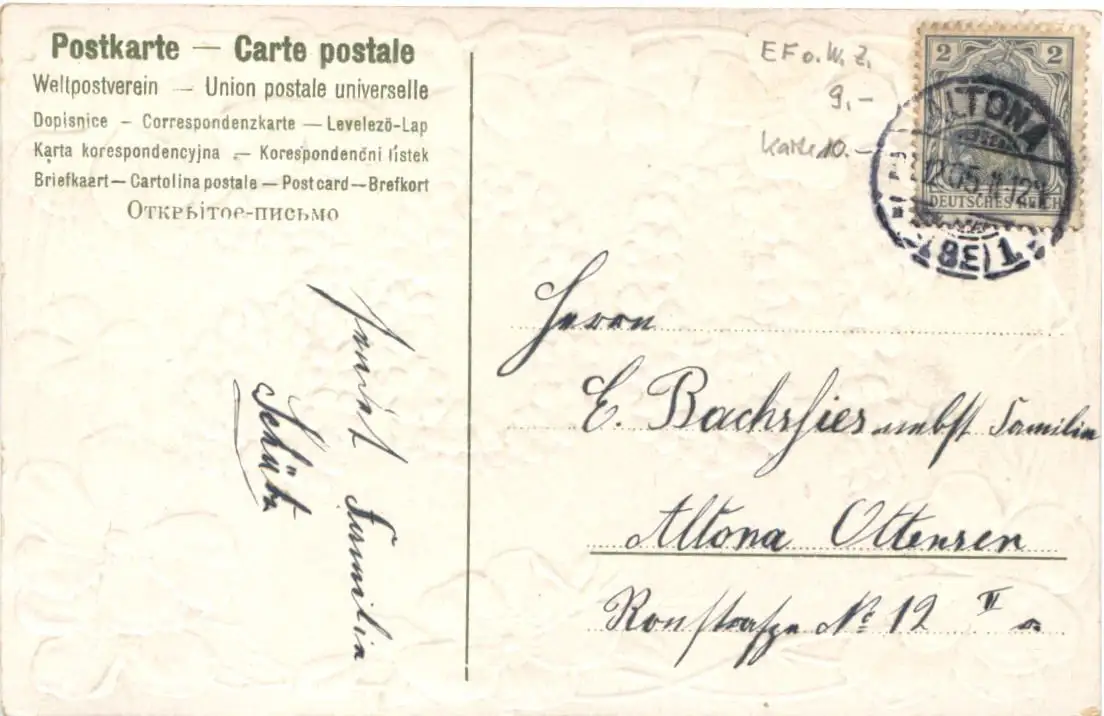 Postkarte — Carte postale
Weltpostverein — Union postale universelle
Dopisnice — Correspondenzkarte — Levelező-Lap
Karta korespondencyjna — Korespondenční lístek
Briefkaart — Cartolina postale — Post card — Brefkort
Открытое-письмо
EF o. W. Z.
9.-
Karte 10.-
2 2
DEUTSCHES REICH
ALTONA
12.05. 11-12V
(BE) 1
Herrn
E. Bachsfies nebst Familie
Altona Ottensen
Nº 12 II
Familie
Schütz